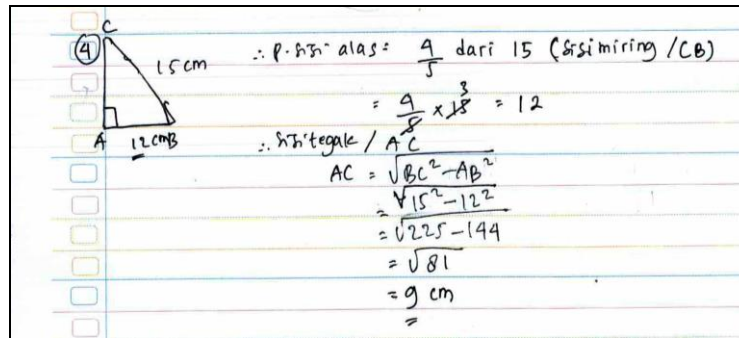 ④
C
15 cm
A 12 cm B
∴ P. sisi alas = 4/5 dari 15 (sisi miring / CB)
= 4/5 × 15 3 = 12
∴ sisi tegak / AC
AC = √BC² - AB²
= √15² - 12²
= √225 - 144
= √81
= 9 cm
=